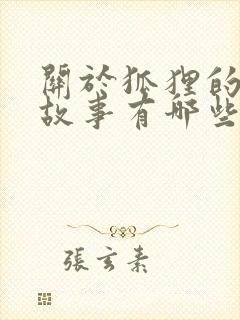 關於狐狸的
故事有哪些
張玄素